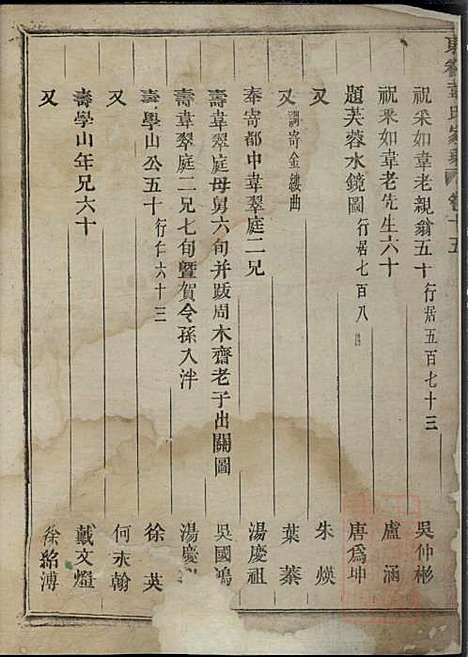 東眷韋氏家乘 卷十五
祝采如韋老親翁五十 行居五百七十三 吳仲彬
祝采如韋老先生六十 盧涵
題芙蓉水鏡圖 行居七百八 唐爲坤
又 朱煐
又 調寄金縷曲 葉蓁
奉寄都中韋翠庭二兄 湯慶祖
壽韋翠庭母舅六旬并跋周木齋老子出關圖 吳國鴻
壽韋翠庭二兄七旬暨賀令孫入泮 湯慶
壽學山公五十 行仁六十三 徐英
又 何永翰
壽學山年兄六十 戴文燈
又 徐紹溥